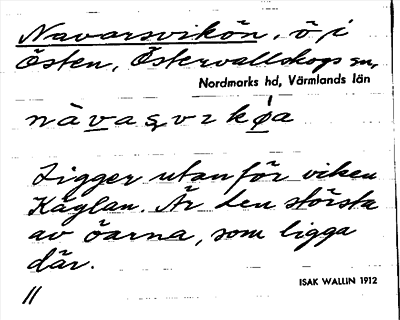 Navarsvikön, ö, i
Östen, Östervallskogs sn,
Nordmarks hd, Värmlands län
Ligger utanför viken
Käglan. Är den största
av öarna, som ligga
där.
ISAK WALLIN 1912